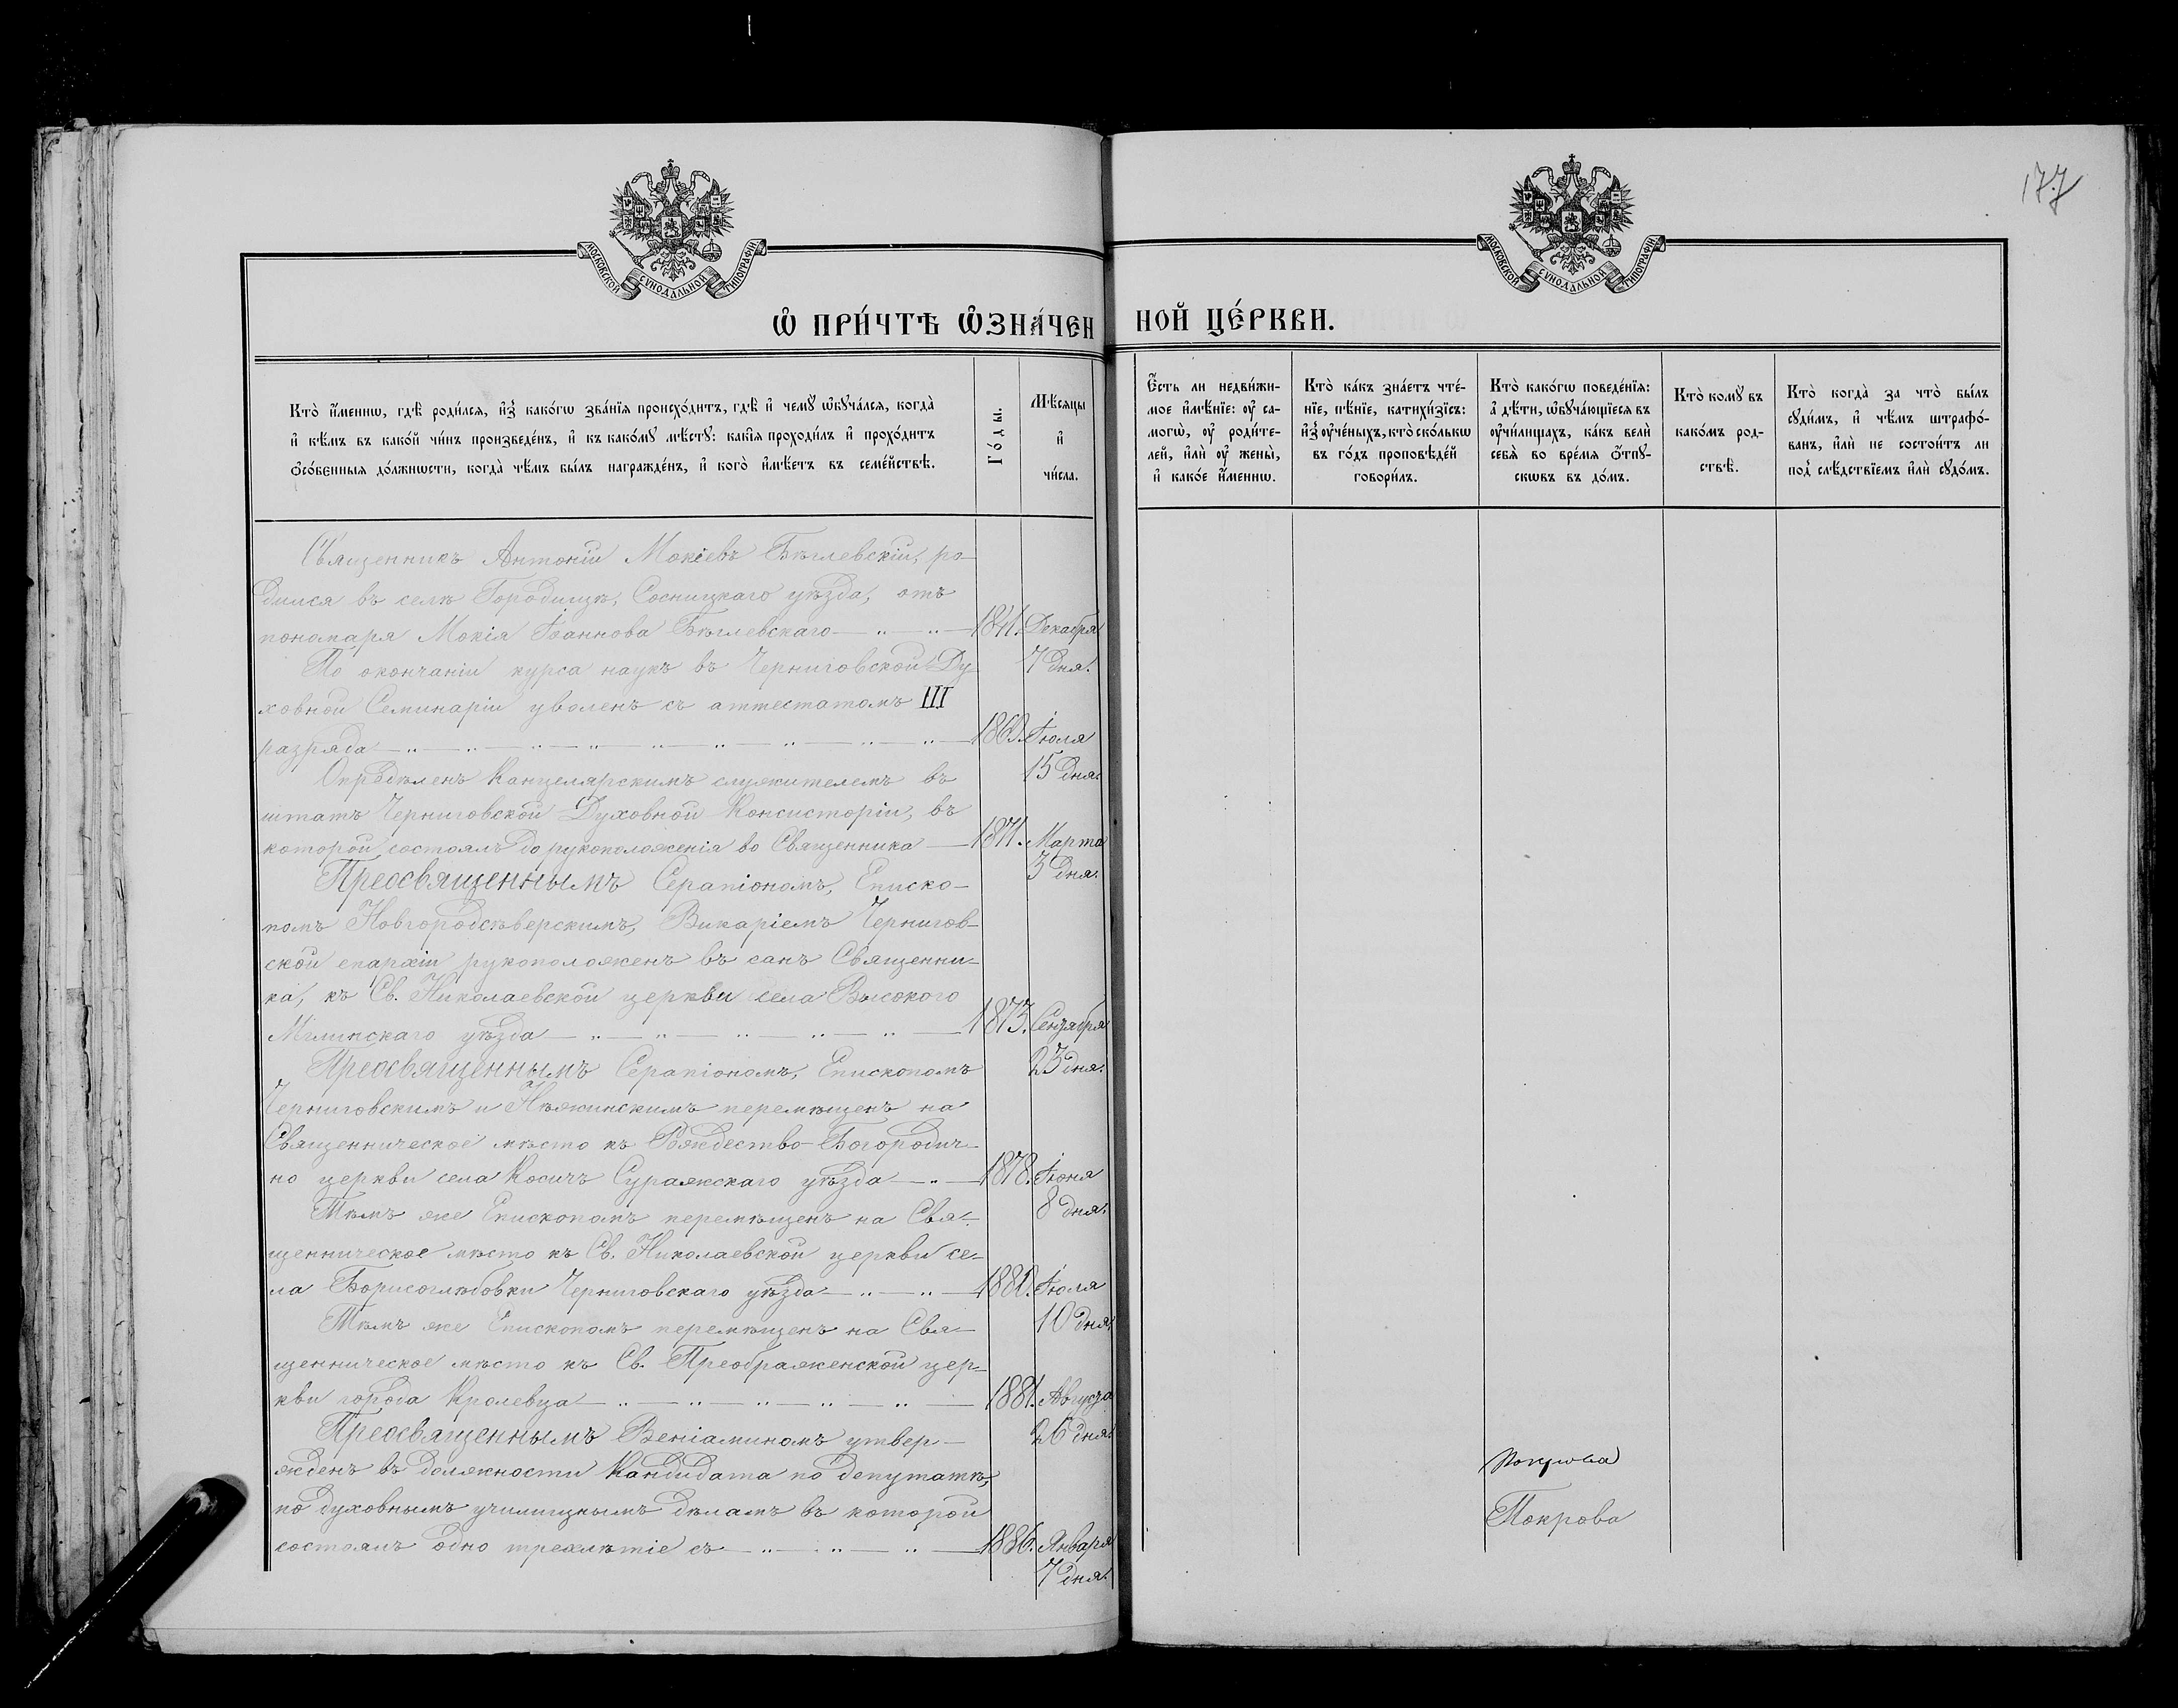 177
МОСКОВСКОЙ СѴНОДАЛЬНОЙ ТИПОГРАФІИ
МОСКОВСКОЙ СѴНОДАЛЬНОЙ ТИПОГРАФІИ
Ѽ ПРИ́ЧТѢ Ѽ҆ЗНА́ЧЕННОЙ ЦЕ́РКВИ.
Кто̀ и҆́менно, гдѣ̀ роди́лсѧ, и҆з̾ како́гѡ зва́нїѧ происхо́дитъ, гдѣ̀ и҆ чемꙋ̀ ѡ҆бꙋча́лсѧ, когда̀
и҆ кѣ́мъ въ како́й чи́нъ произведе́нъ, и҆ къ како́мꙋ мѣ́стꙋ: какі̑ѧ проходи́лъ и҆ прохо́дитъ
ѻ҆со́бенныѧ до́лжности, когда̀ чѣ́мъ бы́лъ награжде́нъ, и҆ кого̀ и҆мѣ́етъ въ семе́йствѣ.
Го́ды.
Мѣ́сѧцы
и҆
чи́сла.
Є҆́сть ли недви́жи-
мое и҆мѣ́нїе: ᲂу҆ са-
могѡ̀, ᲂу҆ роди́те-
лей, и҆лѝ ᲂу҆ жены̀,
и҆ како́е и҆́менно.
Кто̀ ка́къ зна́етъ чте́-
нїе, пѣ́нїе, катихи́зїсъ:
и҆з̾ ᲂу҆че́ныхъ, кто̀ ско́лькѡ
въ го́дъ проповѣ́дей
говори́лъ.
Кто̀ како́гѡ поведе́нїѧ:
а҆ дѣ́ти, ѡ҆бꙋча́ющїесѧ въ
ᲂу҆чи́лищахъ, ка́къ велѝ
себѧ̀ во вре́мѧ ѻ҆тпꙋ-
сковъ въ до́мъ.
Кто̀ комꙋ̀ въ
како́мъ род-
ствѣ̀.
Кто̀ когда̀ за что̀ бы́лъ
сꙋди́мъ, и҆ чѣ́мъ штрафо́-
ванъ, и҆лѝ не состои́тъ ли
под̾ слѣ́дствїемъ и҆лѝ сꙋдо́мъ.
Священникъ Антоній Мокіевъ Бѣглевскій, ро-
дился въ селѣ Городищѣ, Сосницкаго уѣзда, отъ
пономаря Мокія Іоаннова Бѣглевскаго — 1841. Декабря
7 дня.
По окончаніи курса наукъ въ Черниговской Ду
ховной Семинаріи уволенъ съ аттестатомъ III
разряда — Іюля
15 дня.
Опредѣленъ Канцелярскимъ служителемъ въ
штатъ Черниговской Духовной Консисторіи, въ
которой состоялъ до рукоположенія во Священника — 1871. Марта
3 дня.
Преосвященнымъ Серапіономъ, Еписко-
помъ Новгородсѣверскимъ, Викаріемъ Чернигов-
ской епархіи рукоположенъ въ санъ Священни-
ка, къ Св. Николаевской церкви села Высокого
Мглинскаго уѣзда — 1873. Сентября
23 дня.
Преосвященнымъ Серапіономъ, Епископомъ
Черниговскимъ и Нѣжинскимъ перемѣщенъ на
Священническое мѣсто къ Рождество-Богородич-
но церкви села Косичъ Суражскаго уѣзда — 1878. Іюня
8 дня.
Тѣмъ же Епископомъ перемѣщенъ на Свя-
щенническое мѣсто къ Св. Николаевской церкви се-
ла Борисоглѣбовки Черниговскаго уѣзда — 1880. Іюля
10 дня.
Тѣмъ же Епископомъ перемѣщенъ на Свя-
щенническое мѣсто къ Св. Преображенской цер-
кви города Кролевца — 1881. Августа
26 дня.
Преосвященнымъ Веніаминомъ утвер-
жденъ въ должности Кандидата по депутатѣ,
по духовнымъ училищнымъ дѣламъ въ которой
состоялъ одно трехлѣтіе съ — 1886. Января
7 дня.
Покрова
Покрова